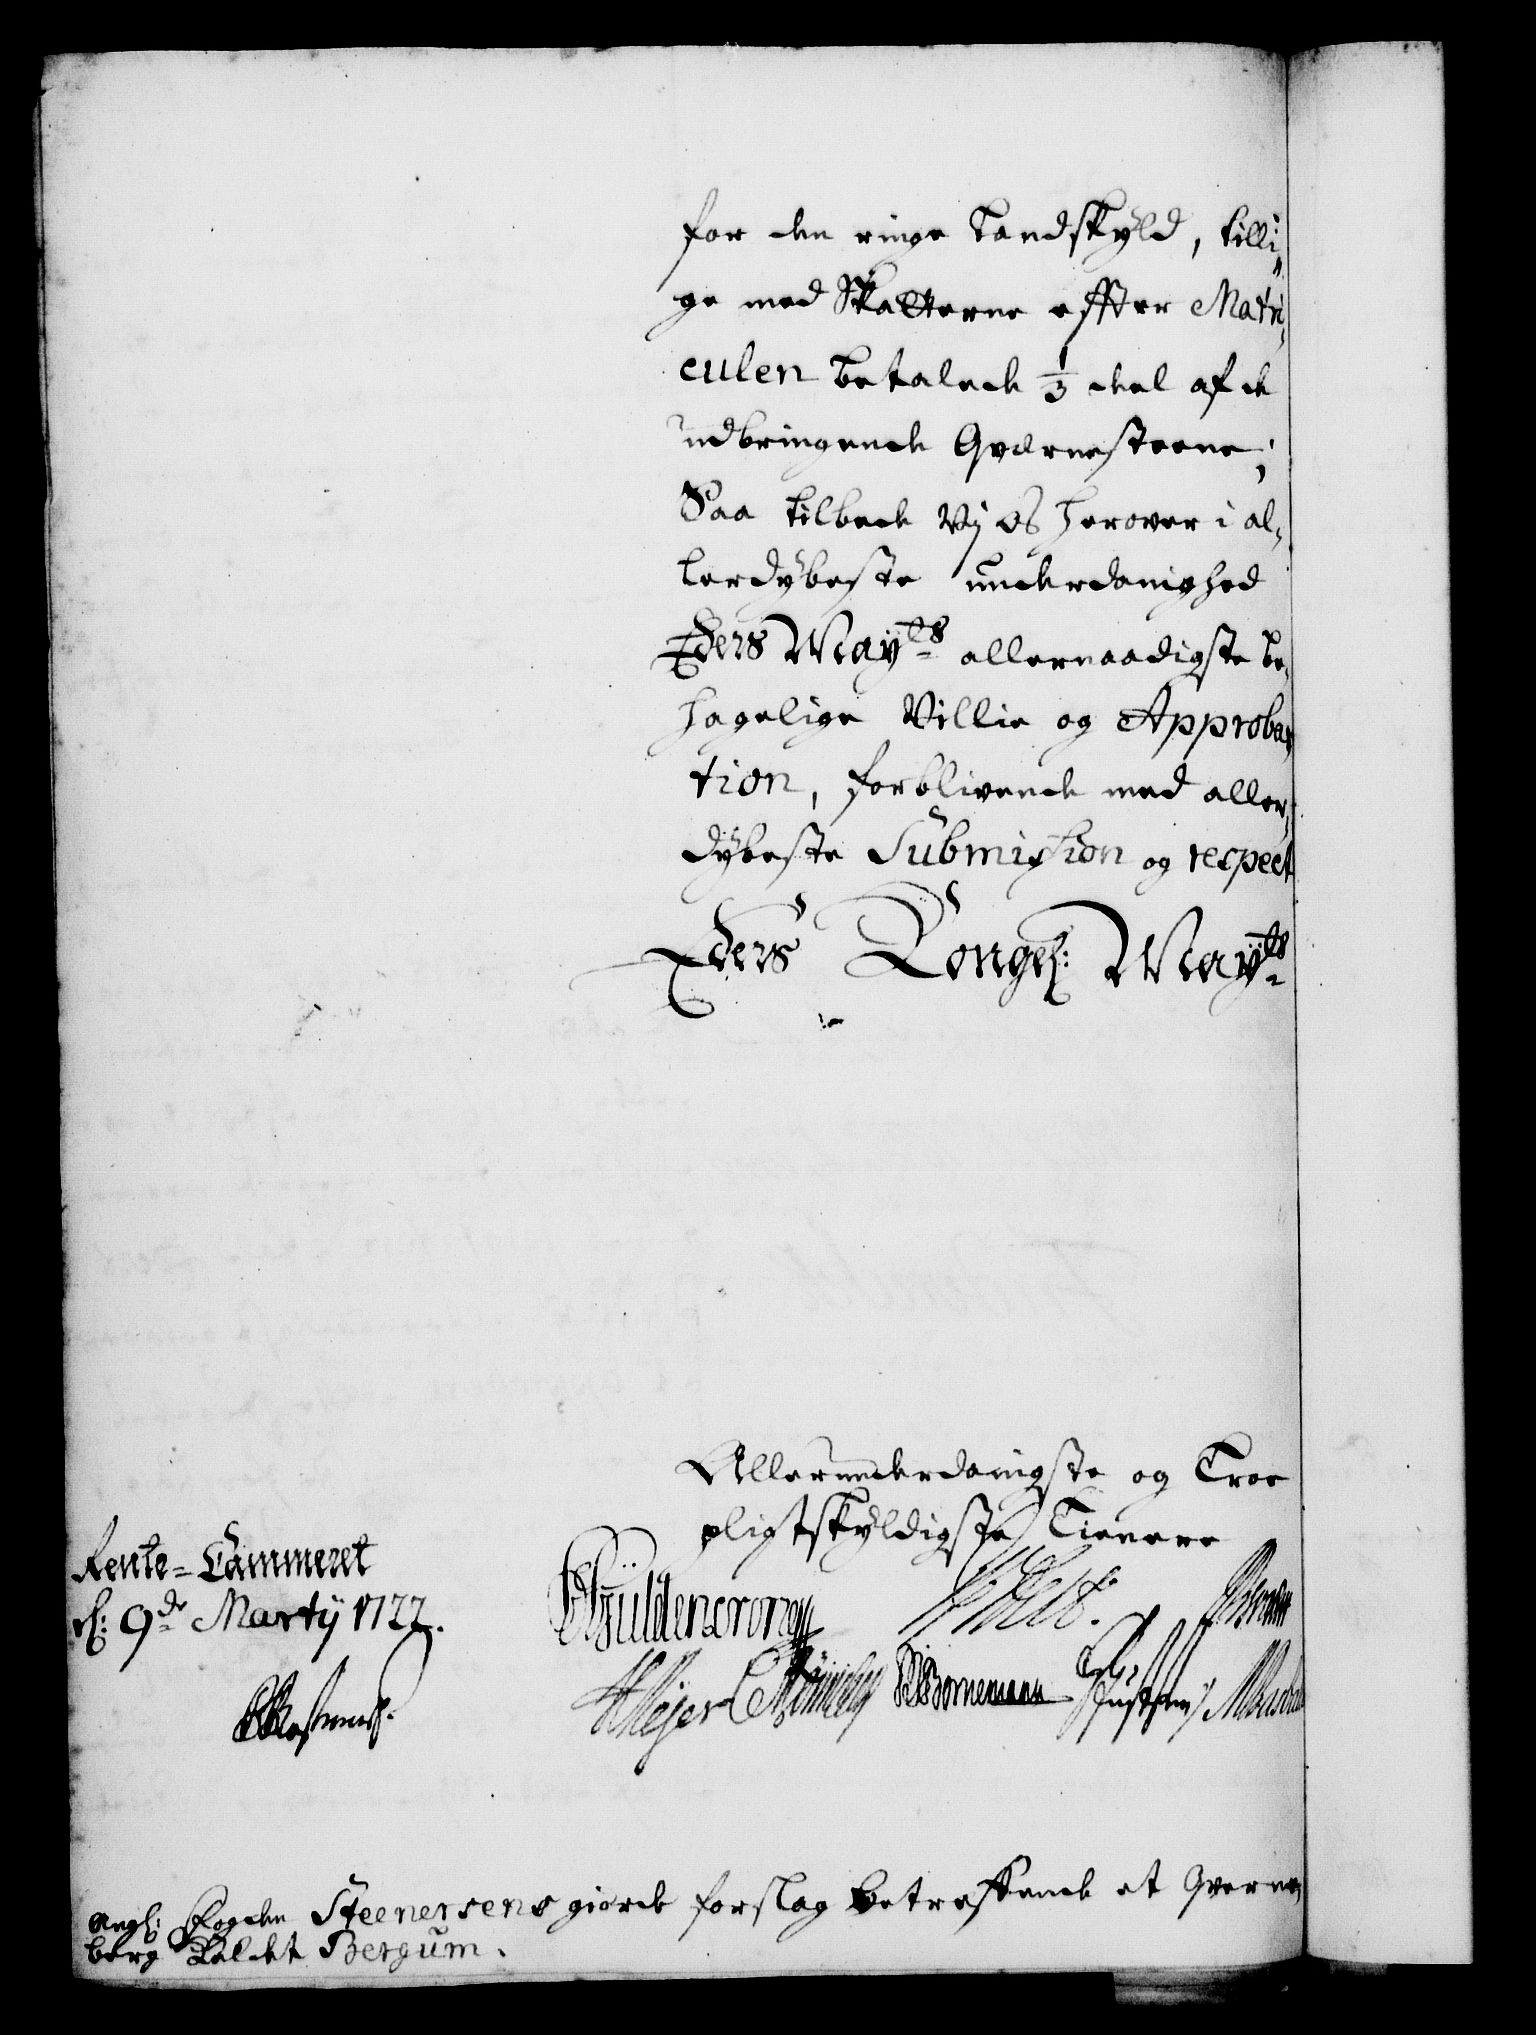 for den ringe Landskÿld, tilli„
ge med Skatterne effter Matri„
culen betalede 1/3 deel af de
udbringende Qværnesteene;
Saa tilbede Vij os herover i al„
lerdÿbeste underdanighed
Eders Maÿts allernaadigste be„
hagelige Villie og Approba„
tion, forblivende med aller„
dÿbeste Submission og respect
Eders Kongel: Maÿts
Allerunderdanigste og Troe
pligtskÿldigste Tienere
Rente-Cammeret
d: 9de Martij 1722.
Güldencrone
Meÿer Bornemann
Angl: Fogden Steenersens giorde forslag betreffende et Qverne„
berg kaldet Bergum.